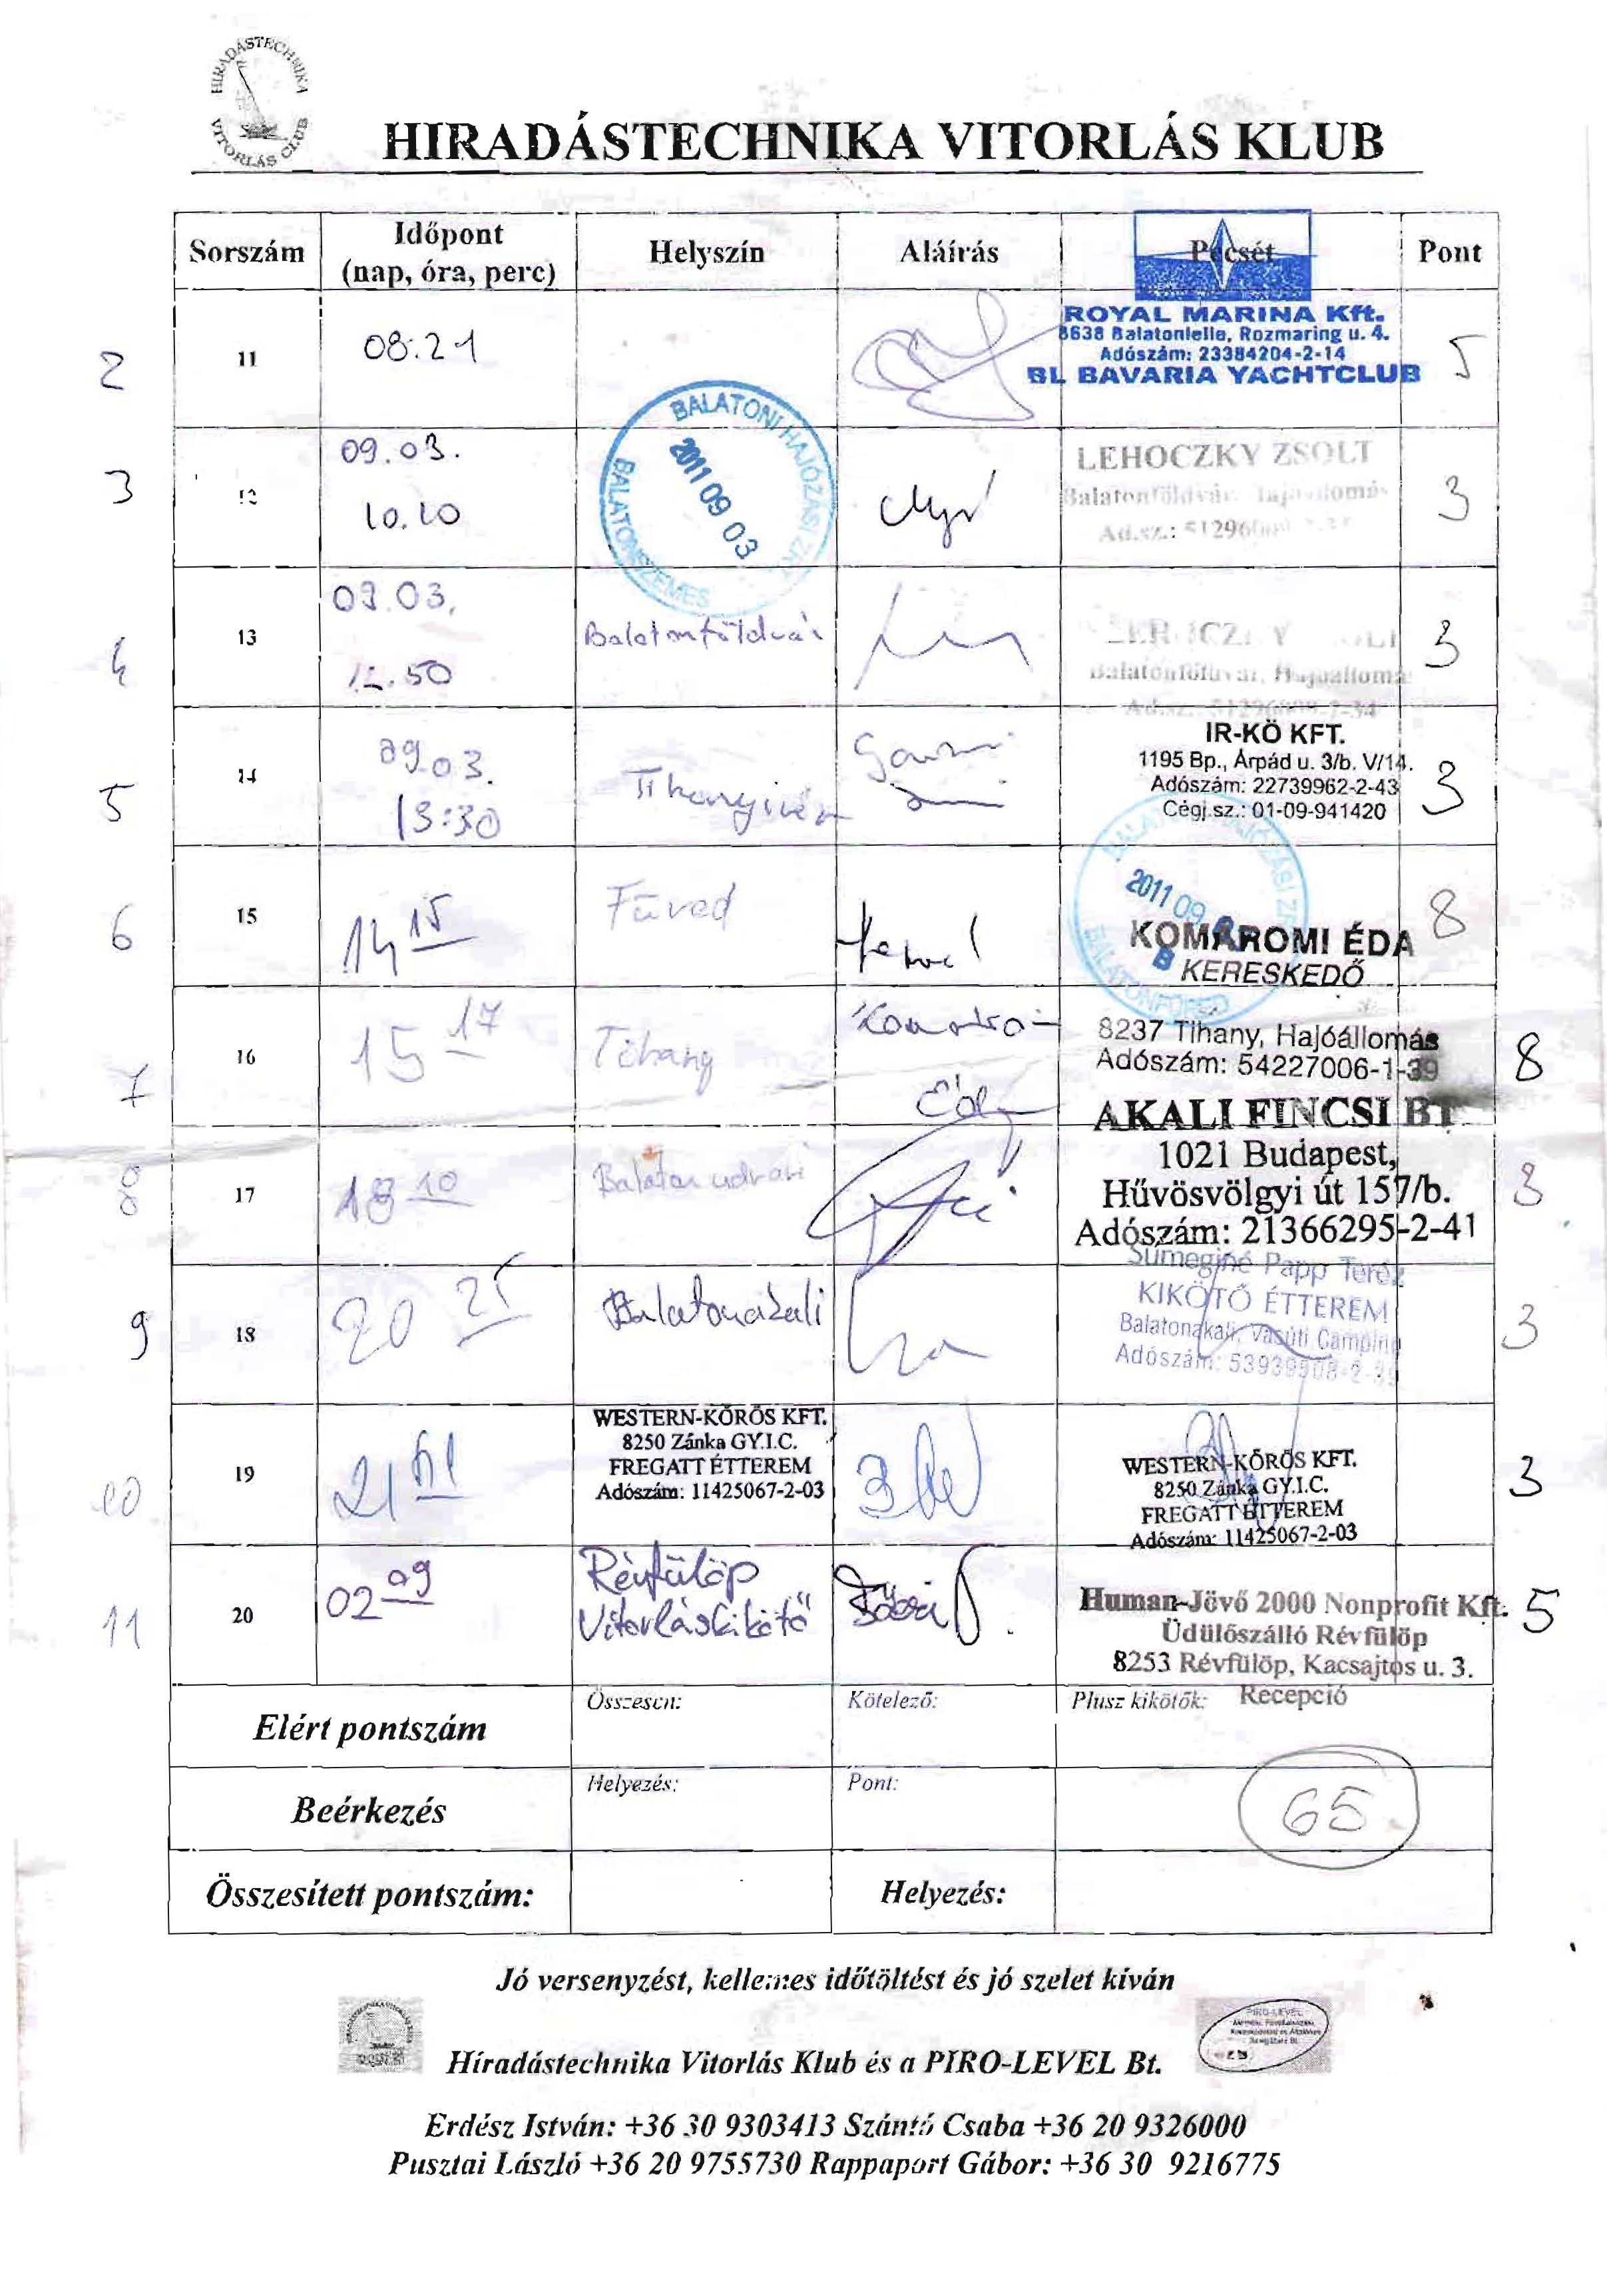 HIRADÁSTECHNIKA
VITORLÁS CLUB
HIRADÁSTECHNIKA VITORLÁS KLUB
Sorszám Időpont (nap, óra, perc) Helyszín Aláírás Pecsét Pont
2 11 08.21 5
ROYAL MARINA Kft.
8638 Balatonlelle, Rozmaring u. 4.
Adószám: 23384204-2-14
BL BAVARIA YACHTCLUB
BALATONI HAJÓZÁSI ZRT
2011 09 03
BALATONSZEMES
3 12 09.03. 10.10 3
LEHOCZKY ZSOLT
Balatonföldvár, Hajóállomás
4 13 09.03. 12.50 Balatonföldvár 3
Balatonföldvár, Hajóállomás
5 14 09.03. 13:30 3
IR-KÖ KFT.
1195 Bp., Árpád u. 3/b. V/14.
Adószám: 22739962-2-43
Cégj.sz.: 01-09-941420
6 15 14 15 Füred 8
2011 09
BALATONFÜRED
KOMÁROMI ÉDA
KERESKEDŐ
8237 Tihany, Hajóállomás
Adószám: 54227006-1-39
7 16 15 17 Tihany 8
AKALI FINCSI BT
1021 Budapest,
Hűvösvölgyi út 157/b.
Adószám: 21366295-2-41
8 17 18 10 Balatonudvari 3
Sümeginé Papp Teréz
KIKÖTŐ ÉTTEREM
Balatonakali, Vasúti Camping
9 18 20 25 Balatonakali 3
WESTERN-KŐRÖS KFT.
8250 Zánka GY.I.C.
FREGATT ÉTTEREM
Adószám: 11425067-2-03
10 19 21 3
WESTERN-KŐRÖS KFT.
8250 Zánka GY.I.C.
FREGATT ÉTTEREM
Adószám: 11425067-2-03
11 20 02 09 Révfülöp Vitorláskikötő 5
Human-Jövő 2000 Nonprofit Kft.
Üdülőszálló Révfülöp
8253 Révfülöp, Kacsajtos u. 3.
Recepció
Elért pontszám Összesen: Kötelező: Plusz kikötők:
Beérkezés Helyezés: Pont: 65
Összesített pontszám: Helyezés:
Jó versenyzést, kellemes időtöltést és jó szelet kíván
PIRO-LEVEL
Híradástechnika Vitorlás Klub és a PIRO-LEVEL Bt.
Erdész István: +36 30 9303413 Szántó Csaba +36 20 9326000
Pusztai László +36 20 9755730 Rappaport Gábor: +36 30 9216775